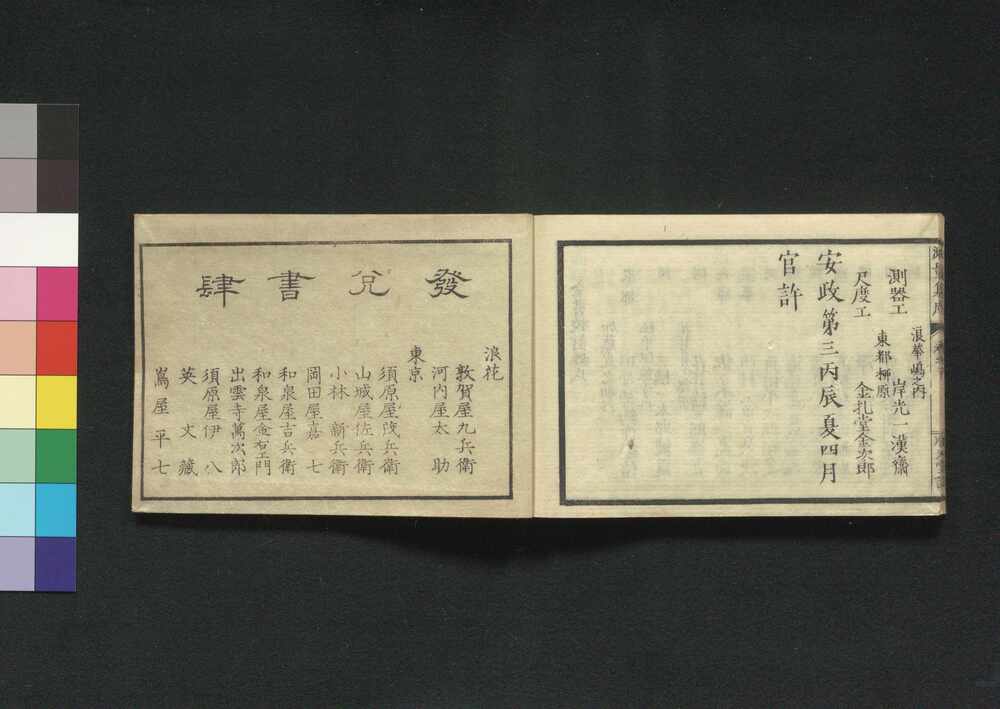 測器工
浪華嶋之内
岸光一漢齋
尺度工
東都柳原
金扎堂金次郎
安政第三丙辰夏四月
官許
發兌書肆
浪花
敦賀屋九兵衛
河内屋太助
東京
須原屋茂兵衛
山城屋佐兵衛
小林新兵衛
岡田屋嘉七
和泉屋吉兵衛
和泉屋金右エ門
出雲寺萬次郎
須原屋伊八
英文藏
嶌屋平七